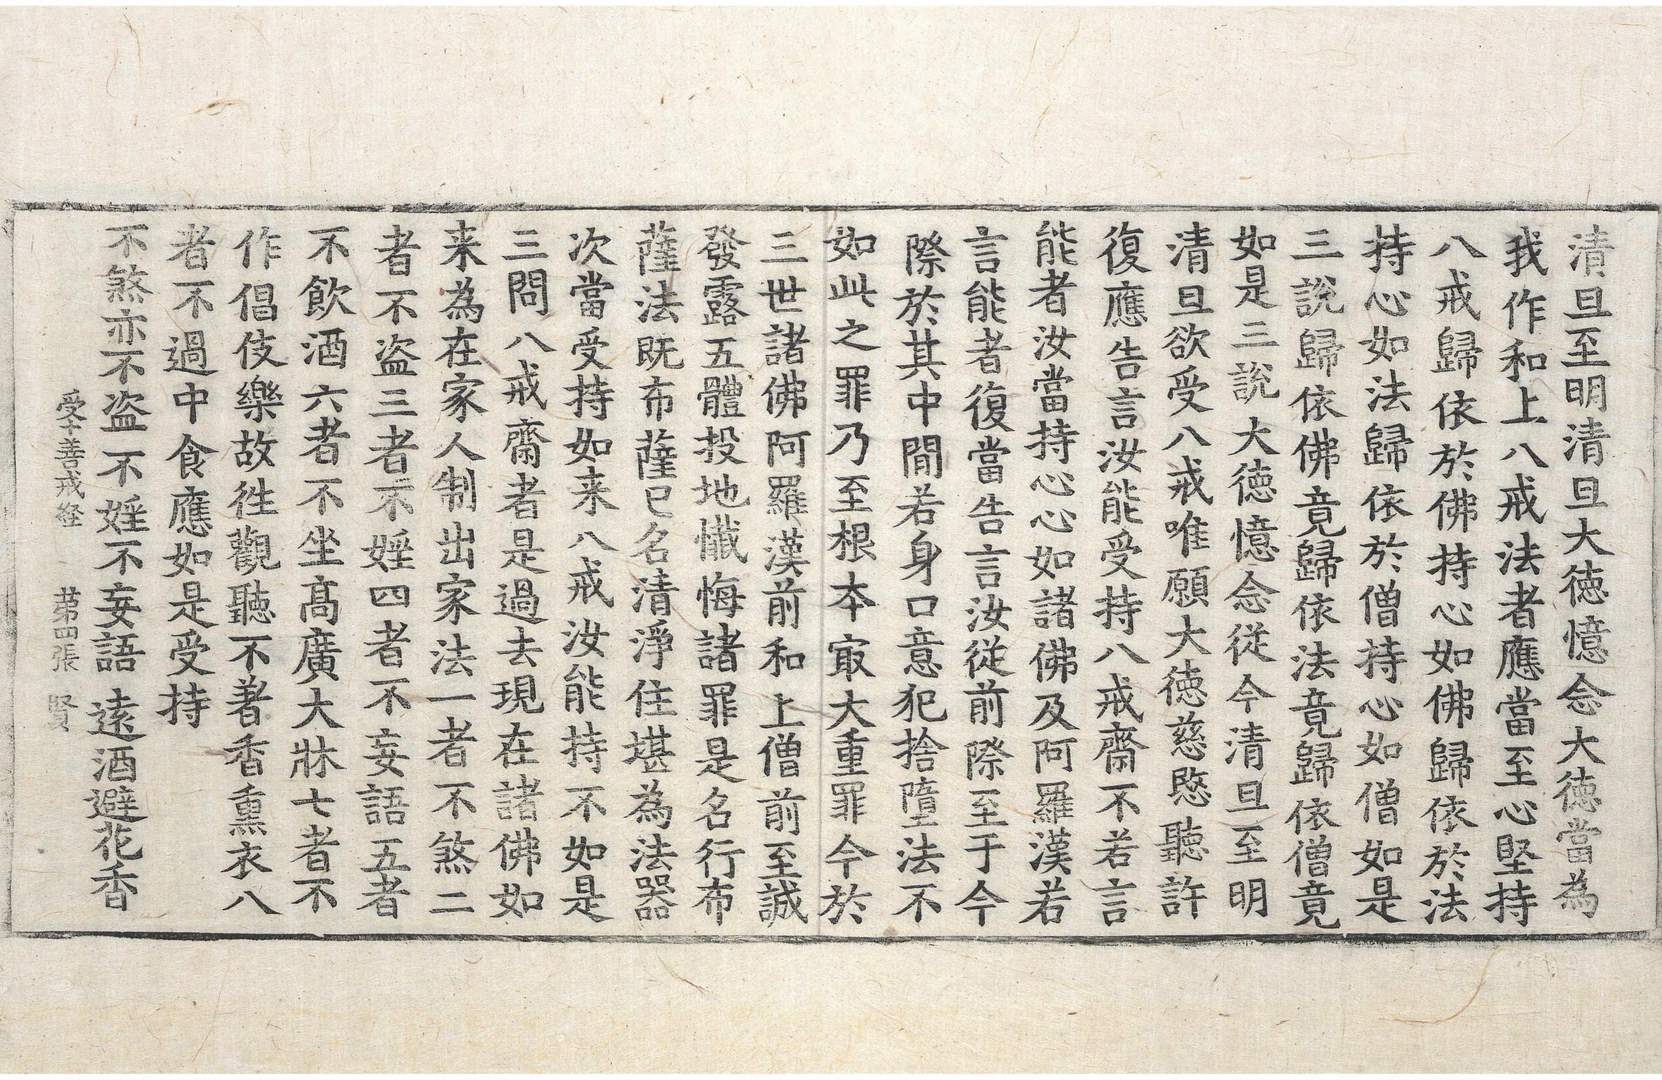 清旦至明清旦大徳憶念大徳當為
我作和上八戒法者應當至心堅持
八戒歸依於佛持心如佛歸依於法
持心如法歸依於僧持心如僧如是
三說歸依佛竟歸依法竟歸依僧竟
如是三說大徳憶念從今清旦至明
清旦欲受八戒唯願大徳慈愍聽許
復應告言汝能受持八戒齋不若言
能者汝當持心心如諸佛及阿羅漢若
言能者復當告言汝從前際至于今
際於其中間若身口意犯捨墮法不
如此之罪乃至根本㝡大重罪今於
三世諸佛阿羅漢前和上僧前至誠
發露五體投地懺悔諸罪是名行布
薩法既布薩已名清淨住堪為法器
次當受持如来八戒汝能持不如是
三問八戒齋者是過去現在諸佛如
来為在家人制出家法一者不煞二
者不盜三者不婬四者不妄語五者
不飲酒六者不坐高廣大牀七者不
作倡伎樂故徃觀聽不著香熏衣八
者不過中食應如是受持
不煞亦不盜 不婬不妄語 遠酒避花香
受十善戒経 第四張 賢